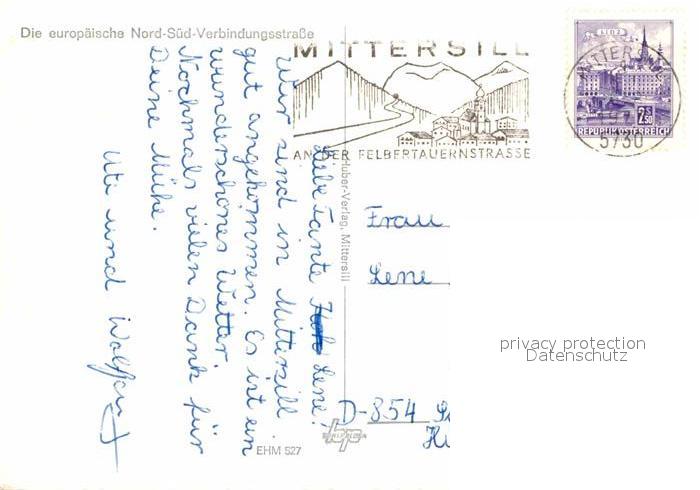 Die europäische Nord-Süd-Verbindungsstraße
MITTERSILL
AN DER FELBERTAUERNSTRASSE
LINZ
2,50
REPUBLIK ÖSTERREICH
5730
Liebe Tante Lene!
Wir sind in Mittersill
gut angekommen. Es ist ein
wunderschönes Wetter.
Nochmals vielen Dank für
Deine Mühe.
Uti und Wolfgang
Huber-Verlag, Mittersill
Frau
Lene
D-854
EHM 527
privacy protection
Datenschutz